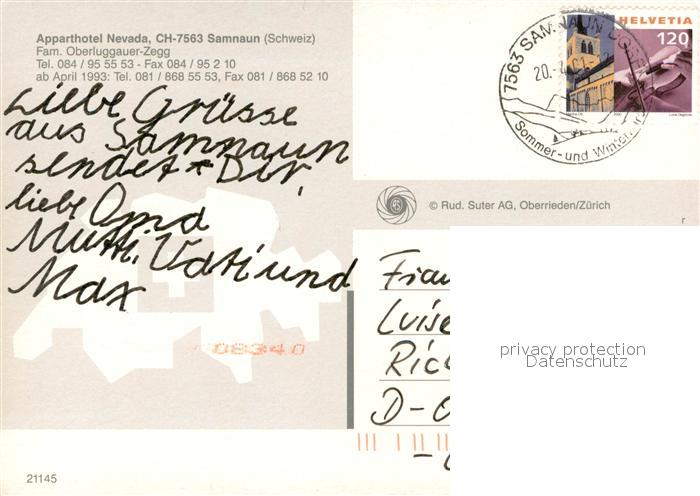 Apparthotel Nevada, CH-7563 Samnaun (Schweiz)
Fam. Oberluggauer-Zegg
Tel. 084 / 95 55 53 - Fax 084 / 95 2 10
ab April 1993: Tel. 081 / 868 55 53, Fax 081 / 868 52 10
Liebe Grüsse
aus Samnaun
sendet Dir,
liebe Oma
Mutti, Vati und
Max
08340
21145
HELVETIA
120
7563 SAMNAUN
Sommer- und Winter
© Rud. Suter AG, Oberrieden/Zürich
r
Frau
Luise
Ric
D-
privacy protection
Datenschutz